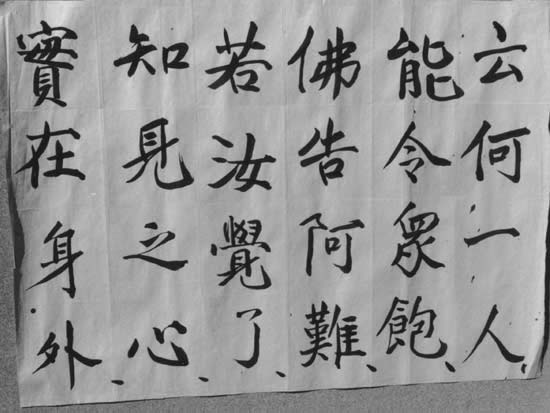 云何一人、
能令眾飽、
佛告阿難、
若汝覺了、
知見之心、
實在身外